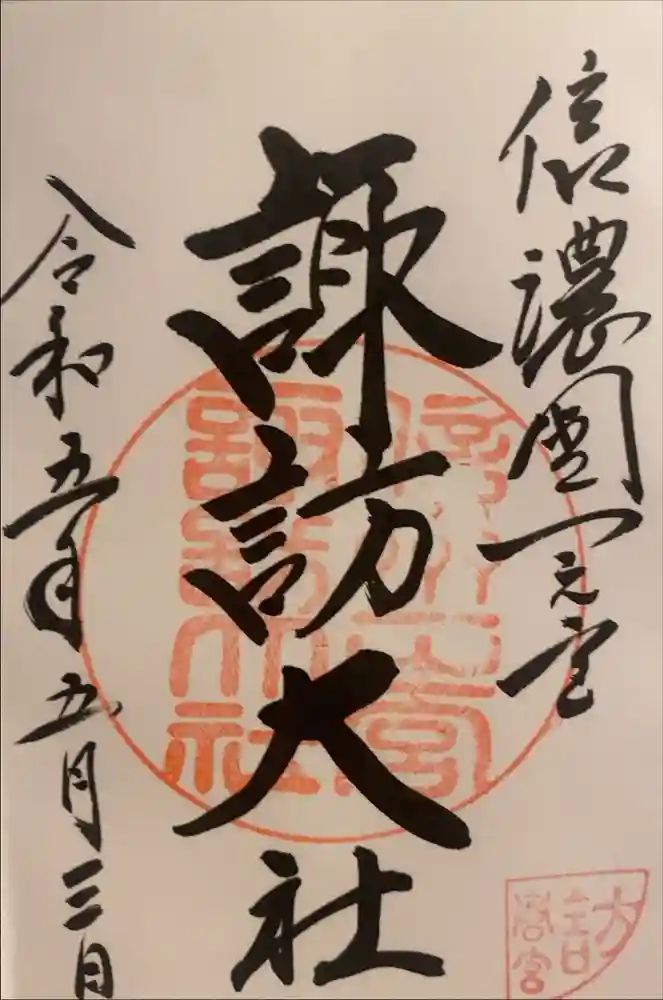 信濃國一之宮
諏訪大社
令和五年五月三日
信州一宮
諏訪大社